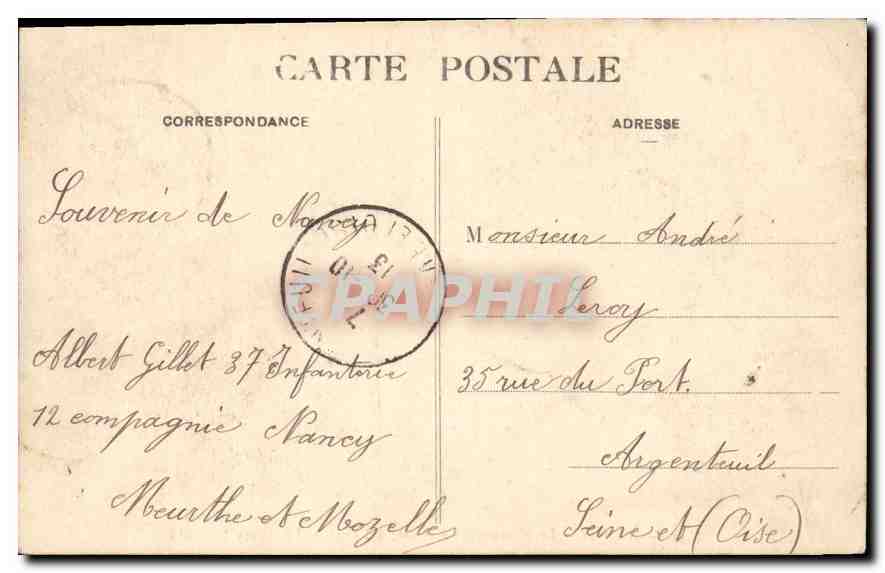 CARTE POSTALE
CORRESPONDANCE
ADRESSE
Souvenir de Nancy
Albert Gillet 37 Infanterie
12 compagnie Nancy
Meurthe et Mozelle
Monsieur André
Leroy
35 rue du Port.
Argenteuil
Seine et (Oise)
CPAPHIL